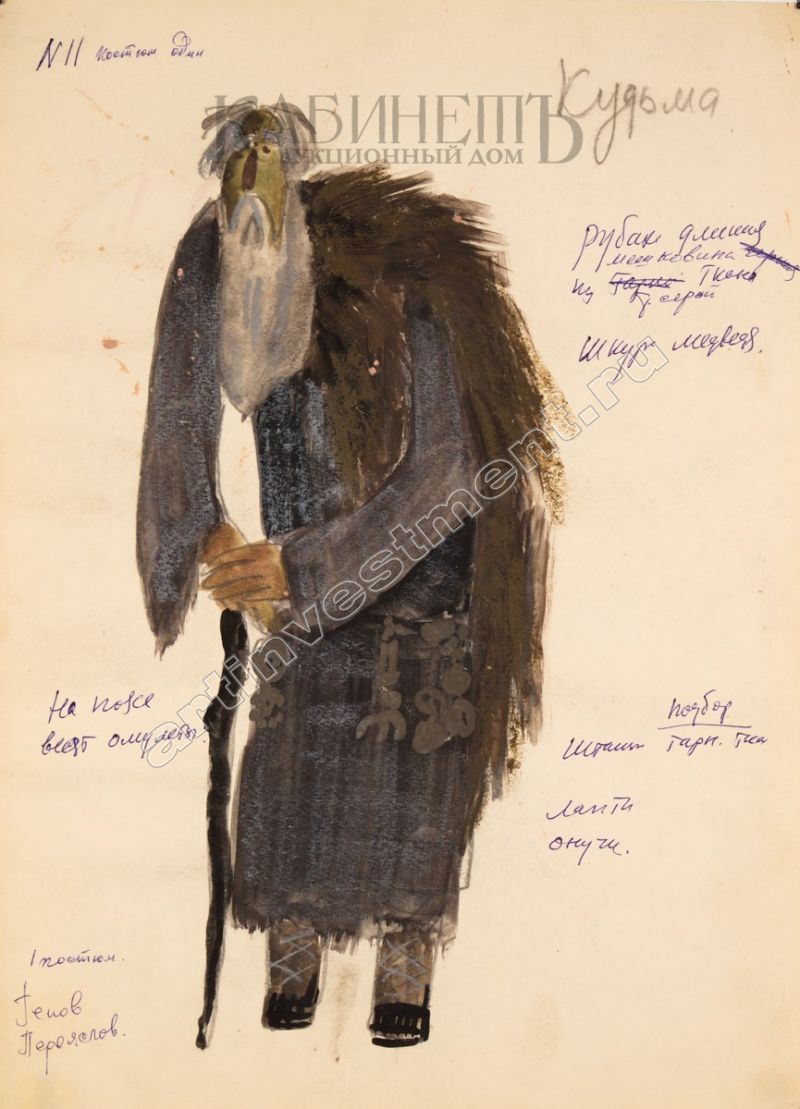 N 11 костюм один
Кудьма
КАБИНЕТЪ
АУКЦИОННЫЙ ДОМ
рубах длинная
мешковина
из ткани
т. серой
Шкура медведя.
artinvestment.ru
На поясе
висят амулеты.
подбор
Штаны тарн. ткан
Лапти
онучи.
1 костюм.
Переяслов.